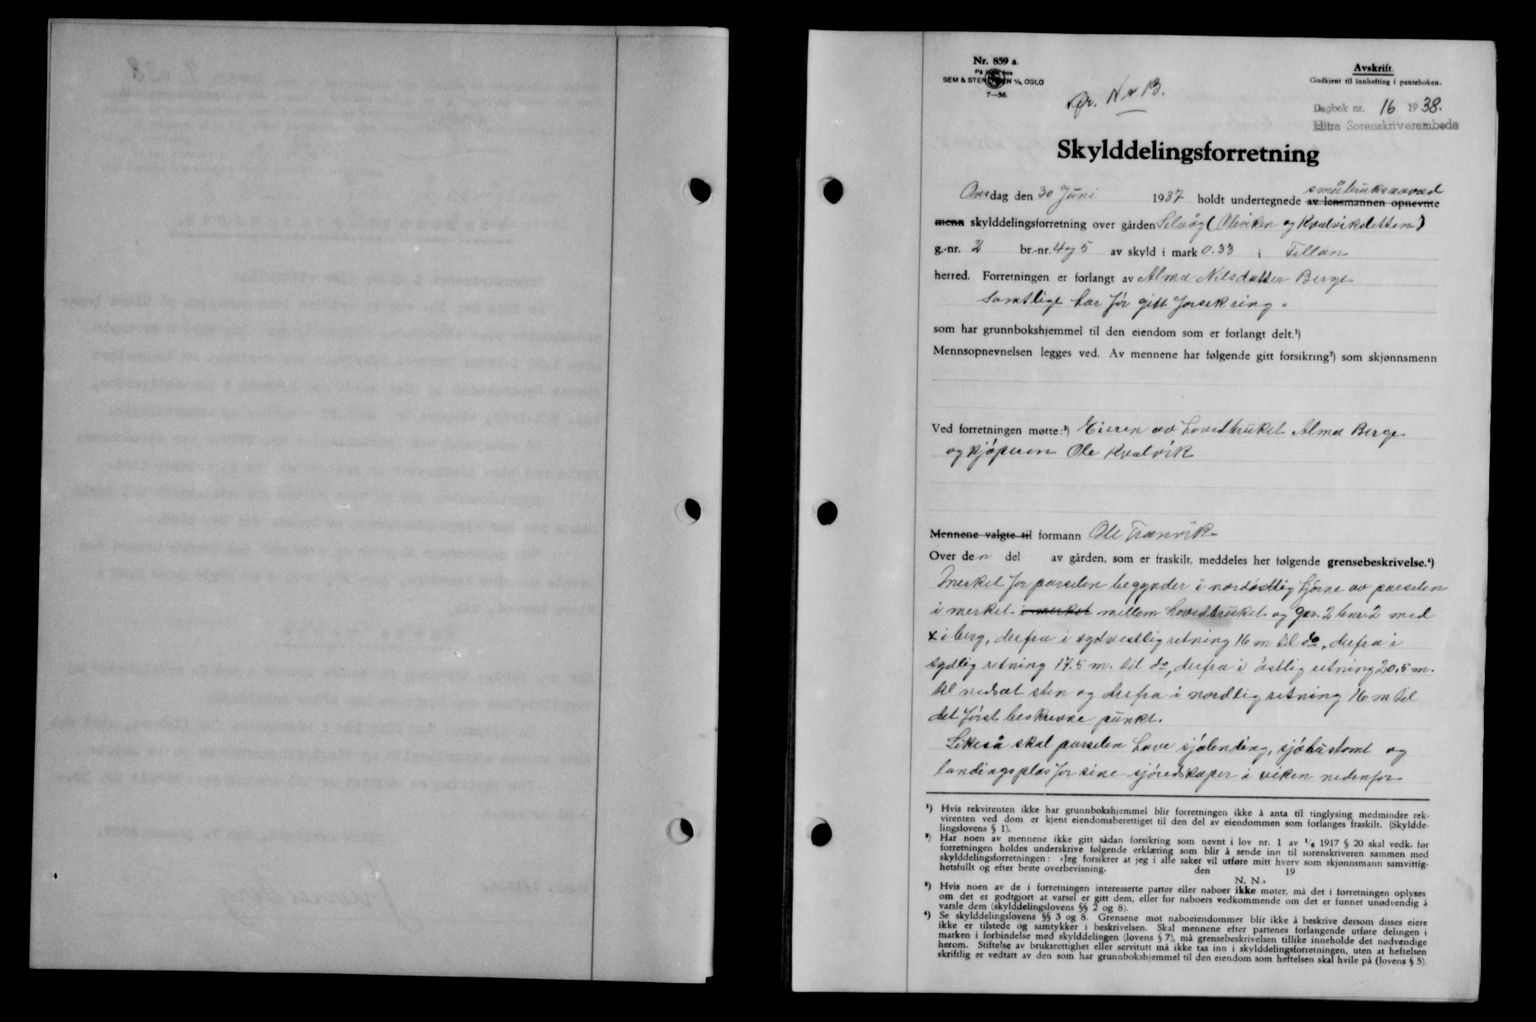 Nr. 859 a.
På lager hos
SEM & STENERSEN A/S, OSLO
7—36.
Avskrift.
Godkjent til innhefting i panteboken.
Dagbok nr. 16 1938.
Hitra Sorenskriverembede
Skylddelingsforretning
Onsdag den 30 Juni 1937 holdt undertegnede av lensmannen opnevnte
menn skylddelingsforretning over gården Selvåg (Oleviken og Kvalvikslitten)
g.-nr. 2 br.-nr. 4 og 5 av skyld i mark 0.33 i Fillan
herred. Forretningen er forlangt av Alma Nilsdatter Berge
Samtlige har før gitt forsikring.
som har grunnbokshjemmel til den eiendom som er forlangt delt.¹)
Mennsopnevnelsen legges ved. Av mennene har følgende gitt forsikring²) som skjønnsmenn
Ved forretningen møtte:³) Eieren av hovedbruket Alma Berge
og kjøperen Ole Kvalvik
Mennene valgte til formann Ole
Over den del av gården, som er fraskilt, meddeles her følgende grensebeskrivelse.⁴)
Merket for parselen begynder i nordøstlig hjørne av parselen
i merket i merket mellem hovedbruket og gnr. 2 bnr 2 med
x i berg, derfra i sydvestlig retning 16 m til do, derfra i
sydlig retning 17.5 m. til do, derfra i østlig retning 20.5 m.
til nedsat sten og derfra i nordlig retning 16 m til
det først beskrevne punkt.
Likeså skal parselen have sjølending, sjøhustomt og
landingsplas for sine sjøredskaper i viken nedenfor
¹) Hvis rekvirenten ikke har grunnbokshjemmel blir forretningen ikke å anta til tinglysing medmindre rek-
virenten ved dom er kjent eiendomsberettiget til den del av eiendommen som forlanges fraskilt. (Skyldde-
lingslovens § 1).
²) Har noen av mennene ikke gitt sådan forsikring som nevnt i lov nr. 1 av 1917 § 20 skal vedk. før
forretningen holdes underskrive følgende erklæring som blir å sende inn til sorenskriveren sammen med
skylddelingsforretningen: «Jeg forsikrer at jeg i alle saker vil utføre mitt hverv som skjønnsmann samvittig-
hetsfullt og efter beste overbevisning. den 19
N. N.»
³) Hvis noen av de i forretningen interesserte parter eller naboer ikke møter, må det i forretningen oplyses
om det er godtgjort at varsel er gitt dem, eller for naboers vedkommende om det er funnet unødvendig å
varsle dem (skylddelingslovens §§ 2 og 8).
⁴) Se skylddelingslovens §§ 3 og 8. Grensene mot naboeiendommer blir ikke å beskrive dersom disses eiere
ikke er tilstede og samtykker i beskrivelsen. Skal mennene efter partenes forlangende utføre delingen i
marken i forbindelse med skylddelingen (lovens § 7), må grensebeskrivelsen tillike inneholde det nødvendige
herom. Stiftelse av bruksrettighet eller servitutt må ikke tas inn i skylddelingsforretningen, uten at heftelsen
skriftlig er vedtatt av den som har grunnbokshjemmel til den eiendom som heftelsen skal hvile på (lovens § 5).